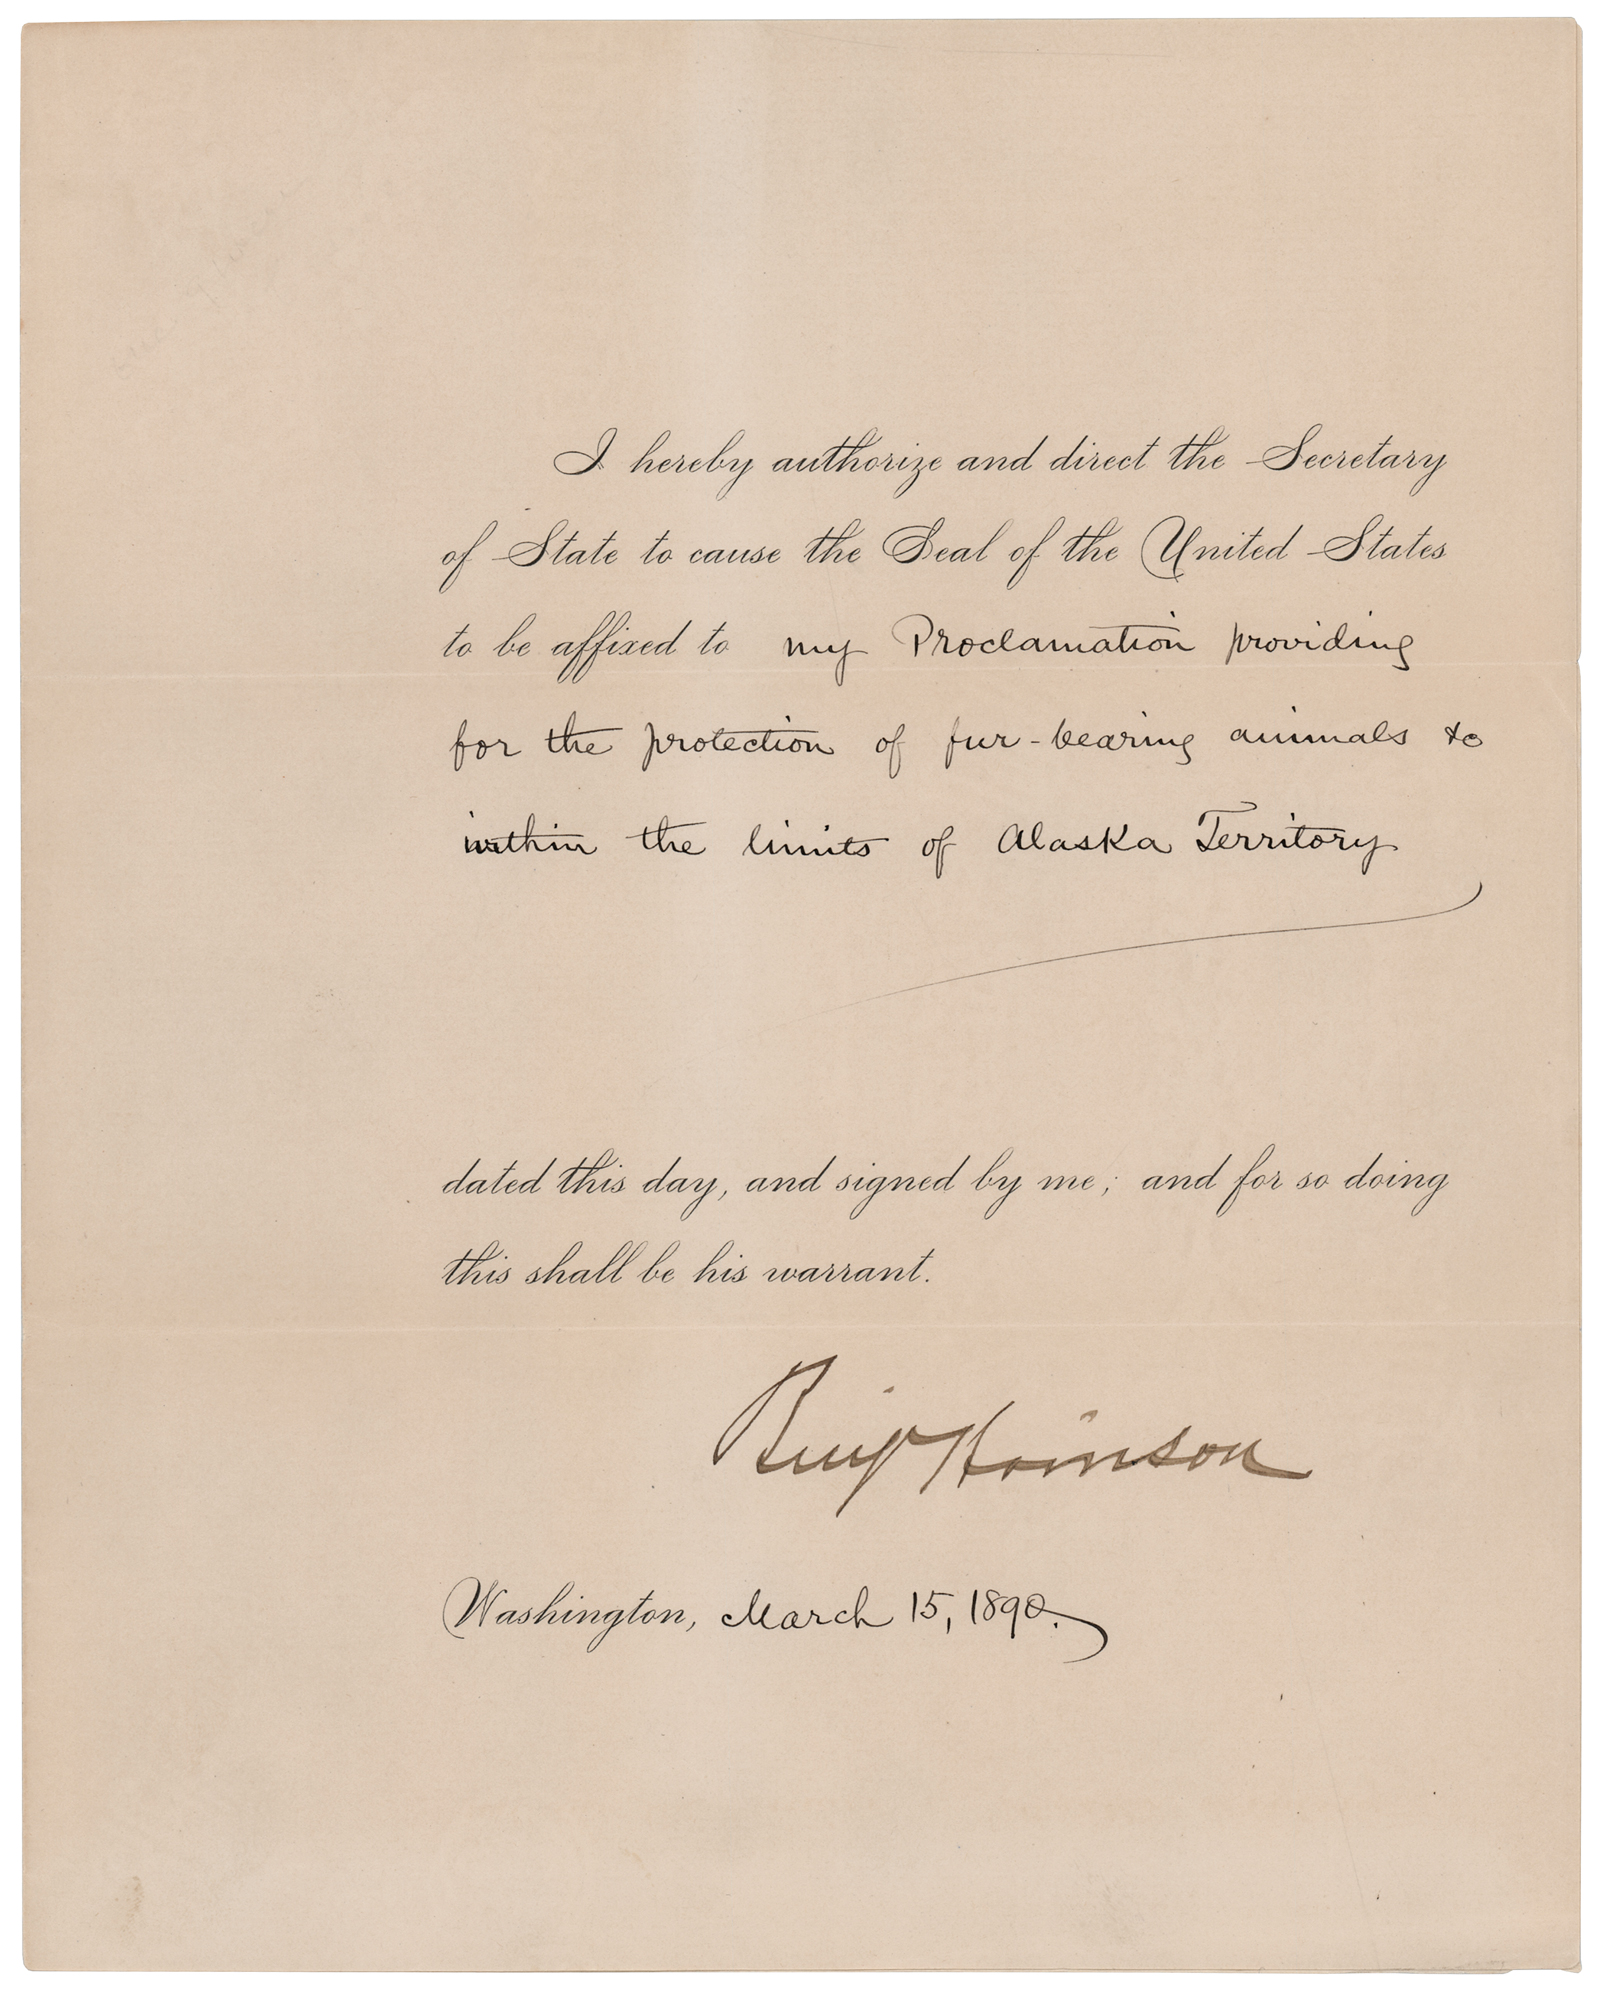 I hereby authorize and direct the Secretary
of State to cause the Seal of the United States
to be affixed to my Proclamation providing
for the protection of fur-bearing animals &c
within the limits of Alaska Territory
dated this day, and signed by me; and for so doing
this shall be his warrant.
Benj Harrison
Washington, March 15, 1890.